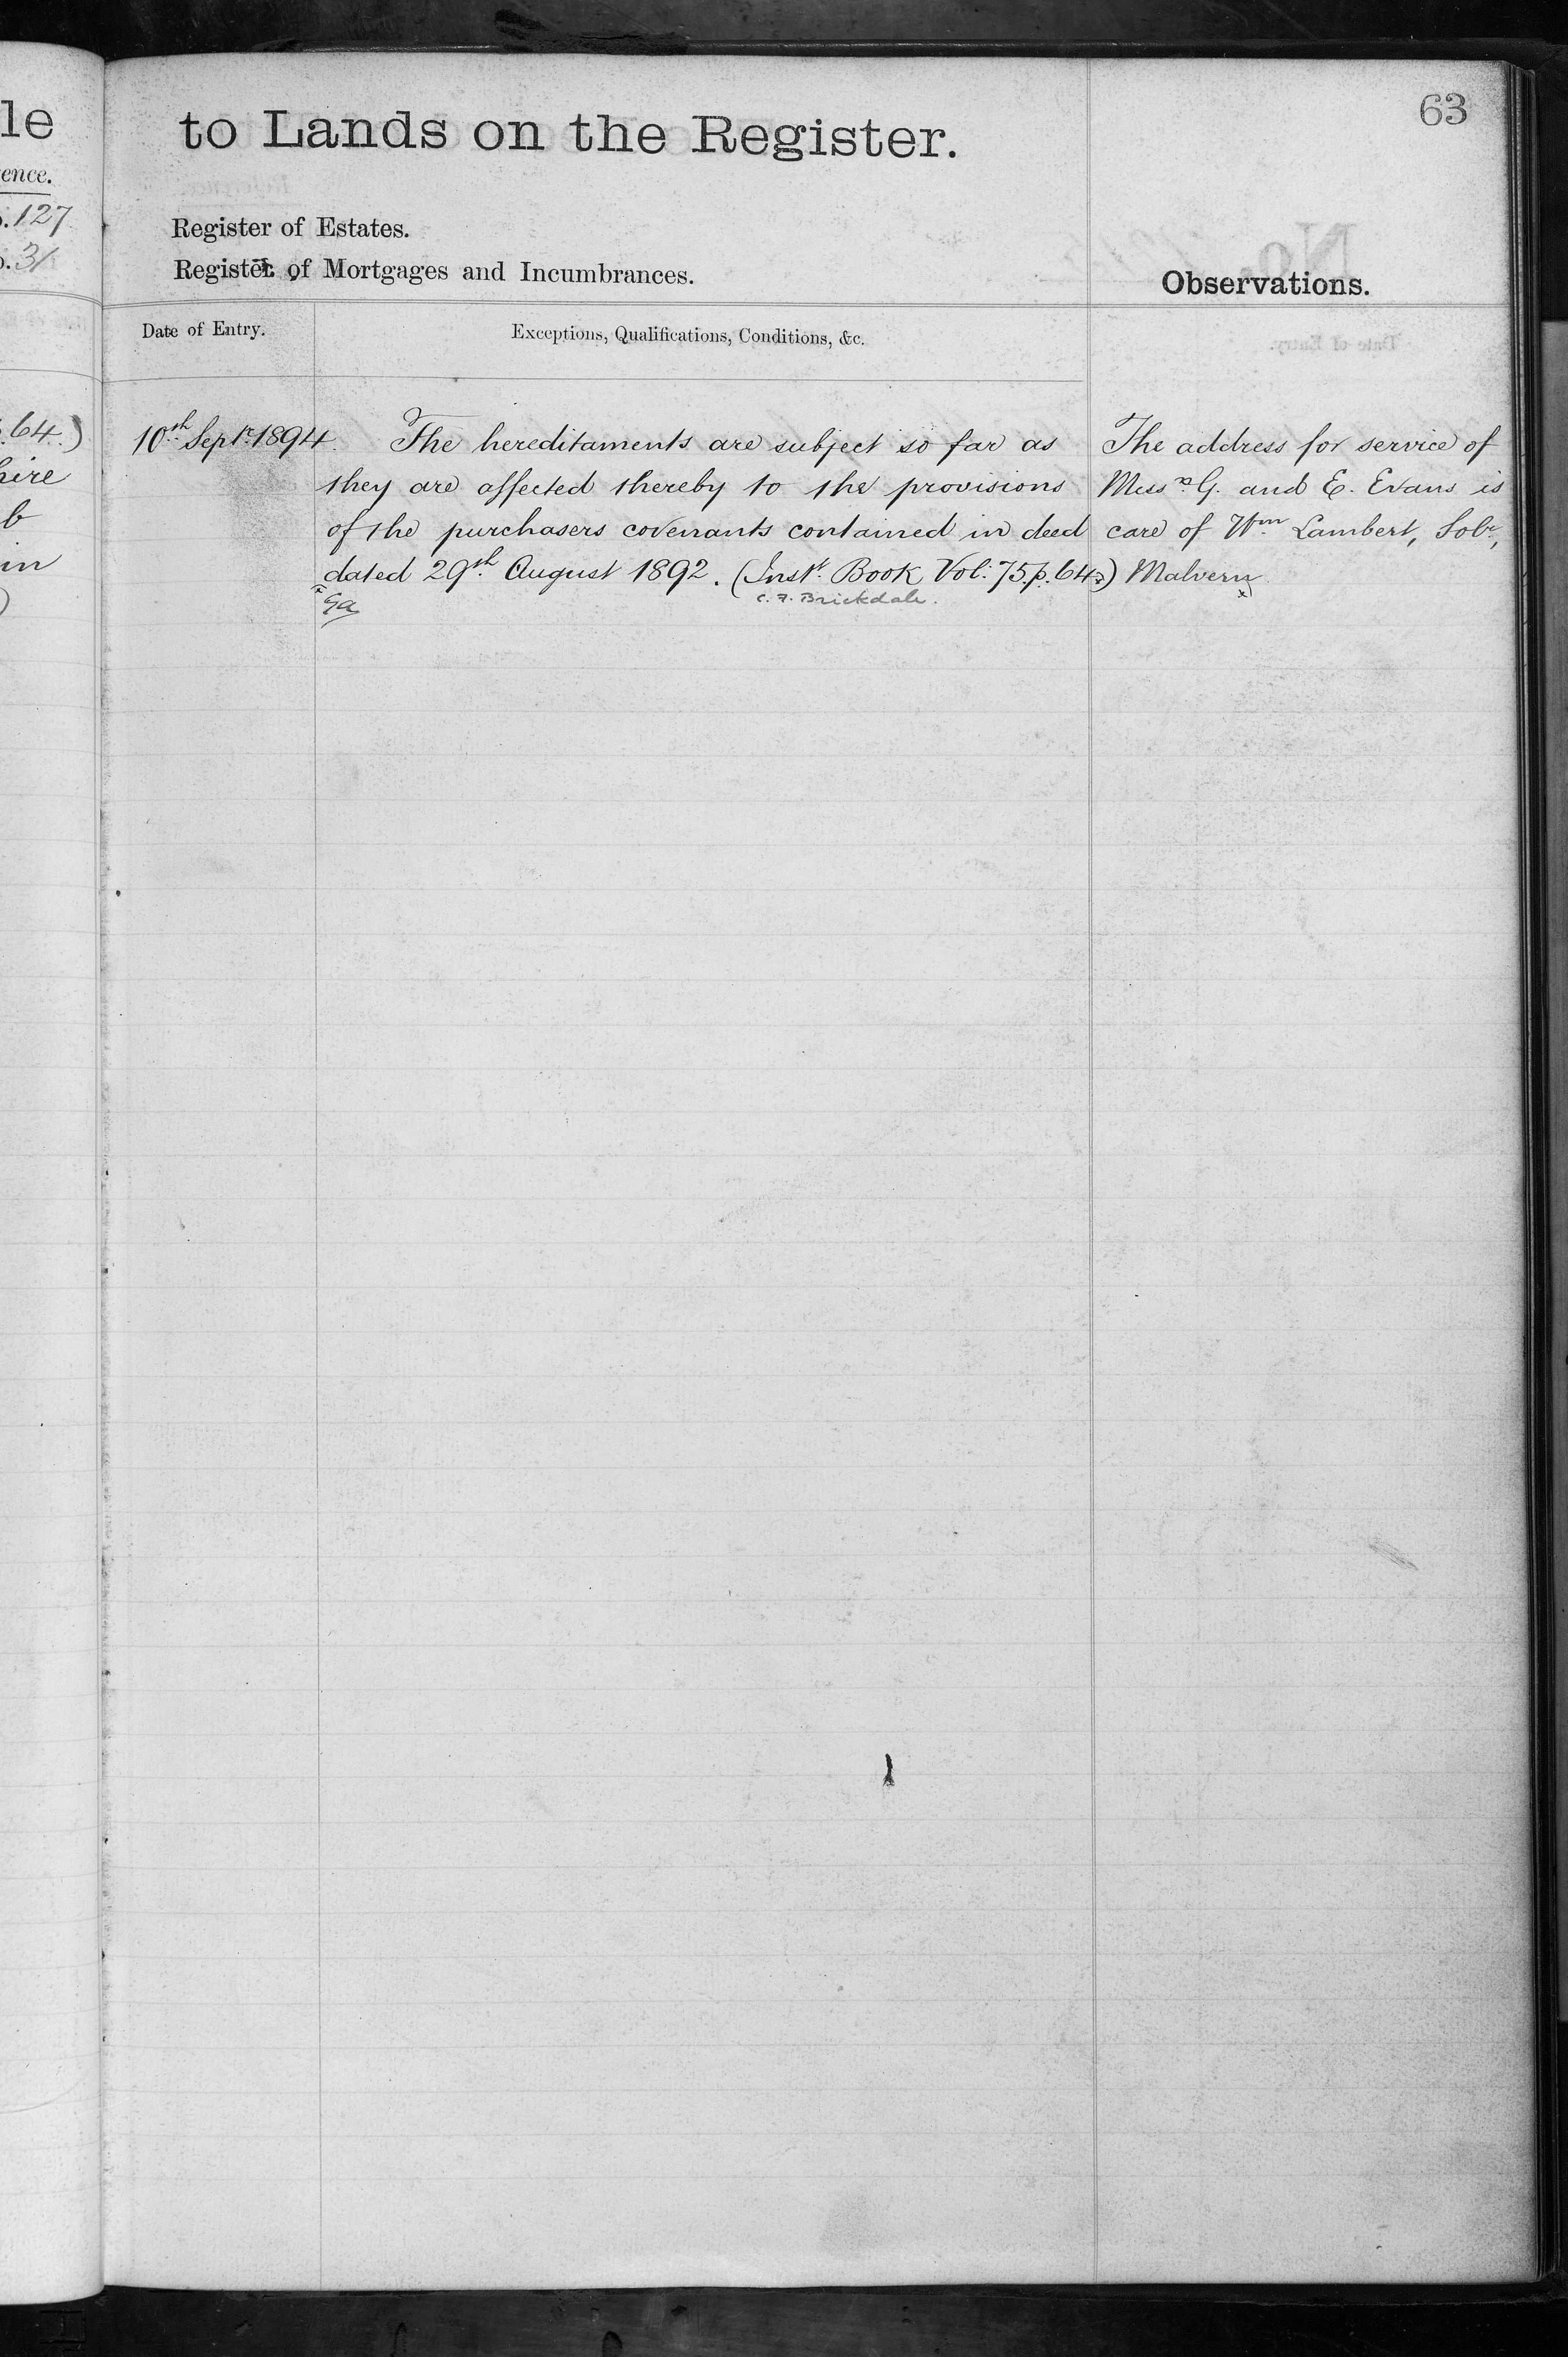 le
ence.
.127
.31
.64.)
hire
b
in
)
63
to Lands on the Register.
Register of Estates.
Register of Mortgages and Incumbrances.
Observations.
Date of Entry.
Exceptions, Qualifications, Conditions, &c.
10th Septr. 1894.
The hereditaments are subject so far as
they are affected thereby to the provisions
of the purchasers covenants contained in deed
dated 29th August 1892. (Inst. Book Vol. 75. p. 64.)
C. F. Brickdale.
The address for service of
Messrs G. and E. Evans is
care of Wm. Lambert, Solr.,
Malvern